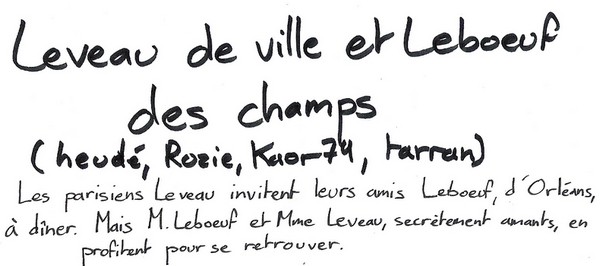 Leveau de ville et Leboeuf
des champs
(heudé, Rozie, Kaor-74, tarran)
Les parisiens Leveau invitent leurs amis Leboeuf, d'Orléans,
à dîner. Mais M. Leboeuf et Mme Leveau, secrètement amants, en
profitent pour se retrouver.